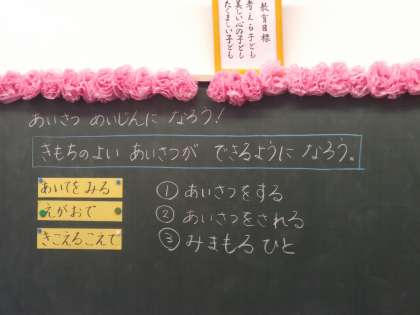 教育目標
考える子ども
美しい心の子ども
たくましい子ども
あいさつ めいじんに なろう!
きもちのよい あいさつが できるように なろう。
あいてを みる
えがおで
きこえるこえで
① あいさつをする
② あいさつをされる
③ みまもる ひと